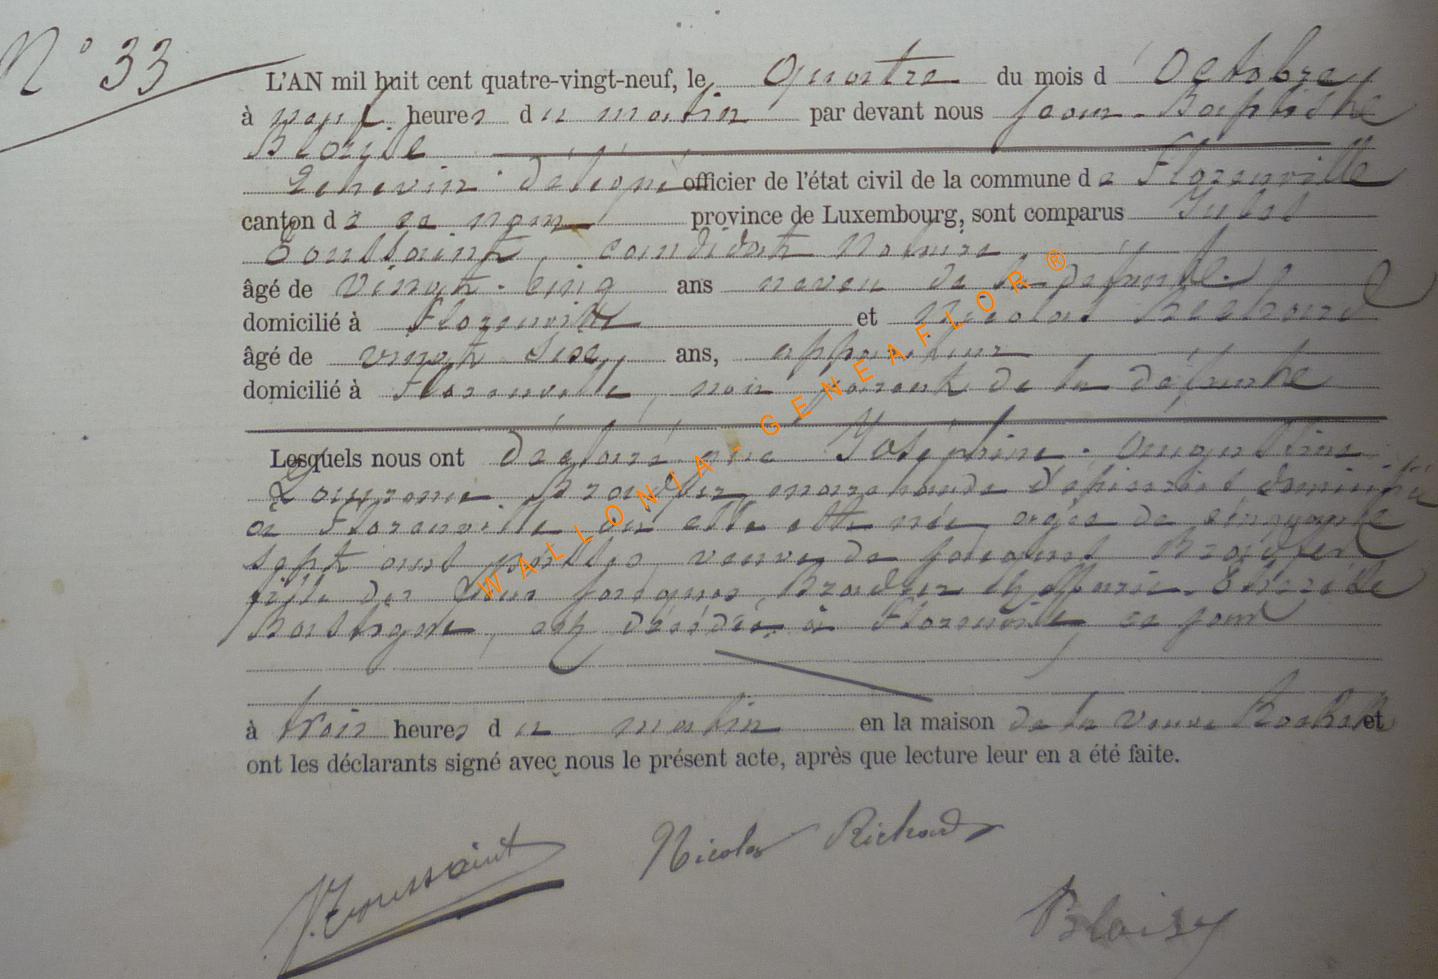 N° 33
L'AN mil huit cent quatre-vingt-neuf, le quatre du mois d'Octobre
à neuf heures du matin par devant nous Jean-Baptiste
Echevin délégué officier de l'état civil de la commune de Florenville
canton de ce nom province de Luxembourg, sont comparus Jules
Toussaint, candidat Notaire
âgé de Vingt-cinq ans neveu de la défunte
domicilié à Florenville et Nicolas Richard
âgé de vingt ans,
domicilié à Florenville, non parent de la défunte
Lesquels nous ont déclaré que Joséphine-Augustine
marchande d'épiceries domiciliée
à Florenville où elle est née, agée de cinquante
sept ans veuve de Jacques
fille de Jacques et Marie-
Bastogne, est décédée à Florenville, ce jour
à trois heures du matin en la maison de la veuve et
ont les déclarants signé avec nous le présent acte, après que lecture leur en a été faite.
J. Toussaint Nicolas Richard
WALLONIA-GENEAFLOR®